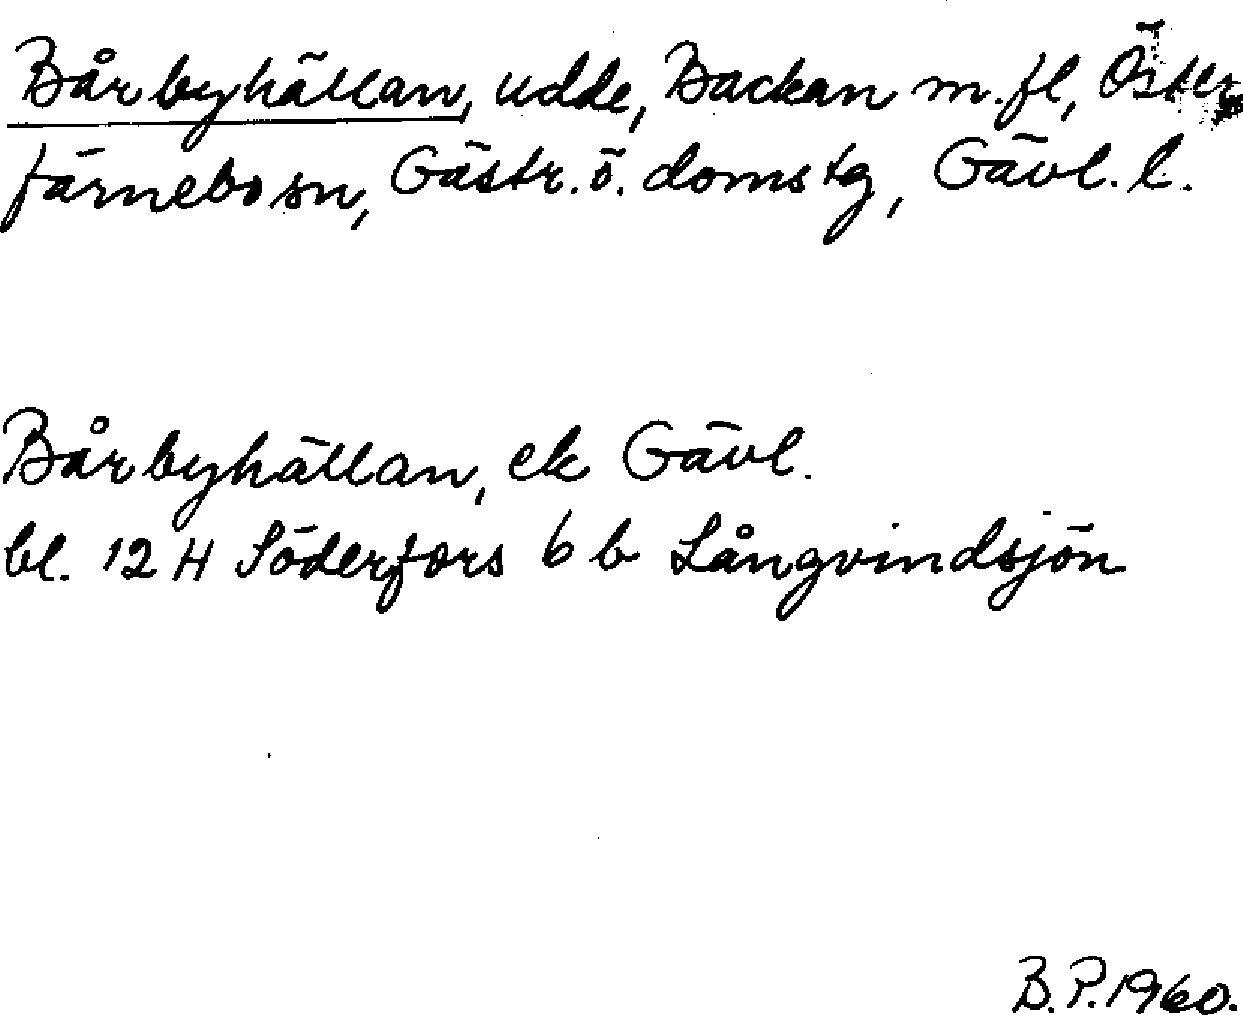 Bårbyhällan, udde, Backan m.fl, Öster
färnebo sn, Gästr. ö. domstg, Gävl. l.
Bårbyhällan, ek Gävl.
bl. 12 H Söderfors 6 b Långvindsjön
B.P.1960.